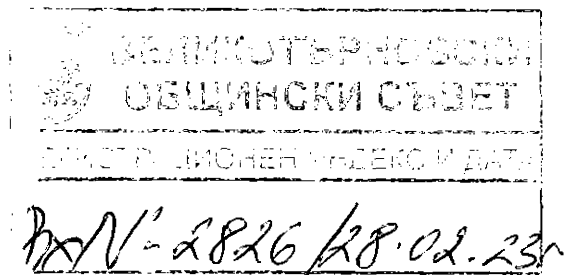 ВЕЛИКОТЪРНОВСКИ
ОБЩИНСКИ СЪВЕТ
РЕГИСТРАЦИОНЕН ИНДЕКС И ДАТА
Вх№-2826/28.02.23г